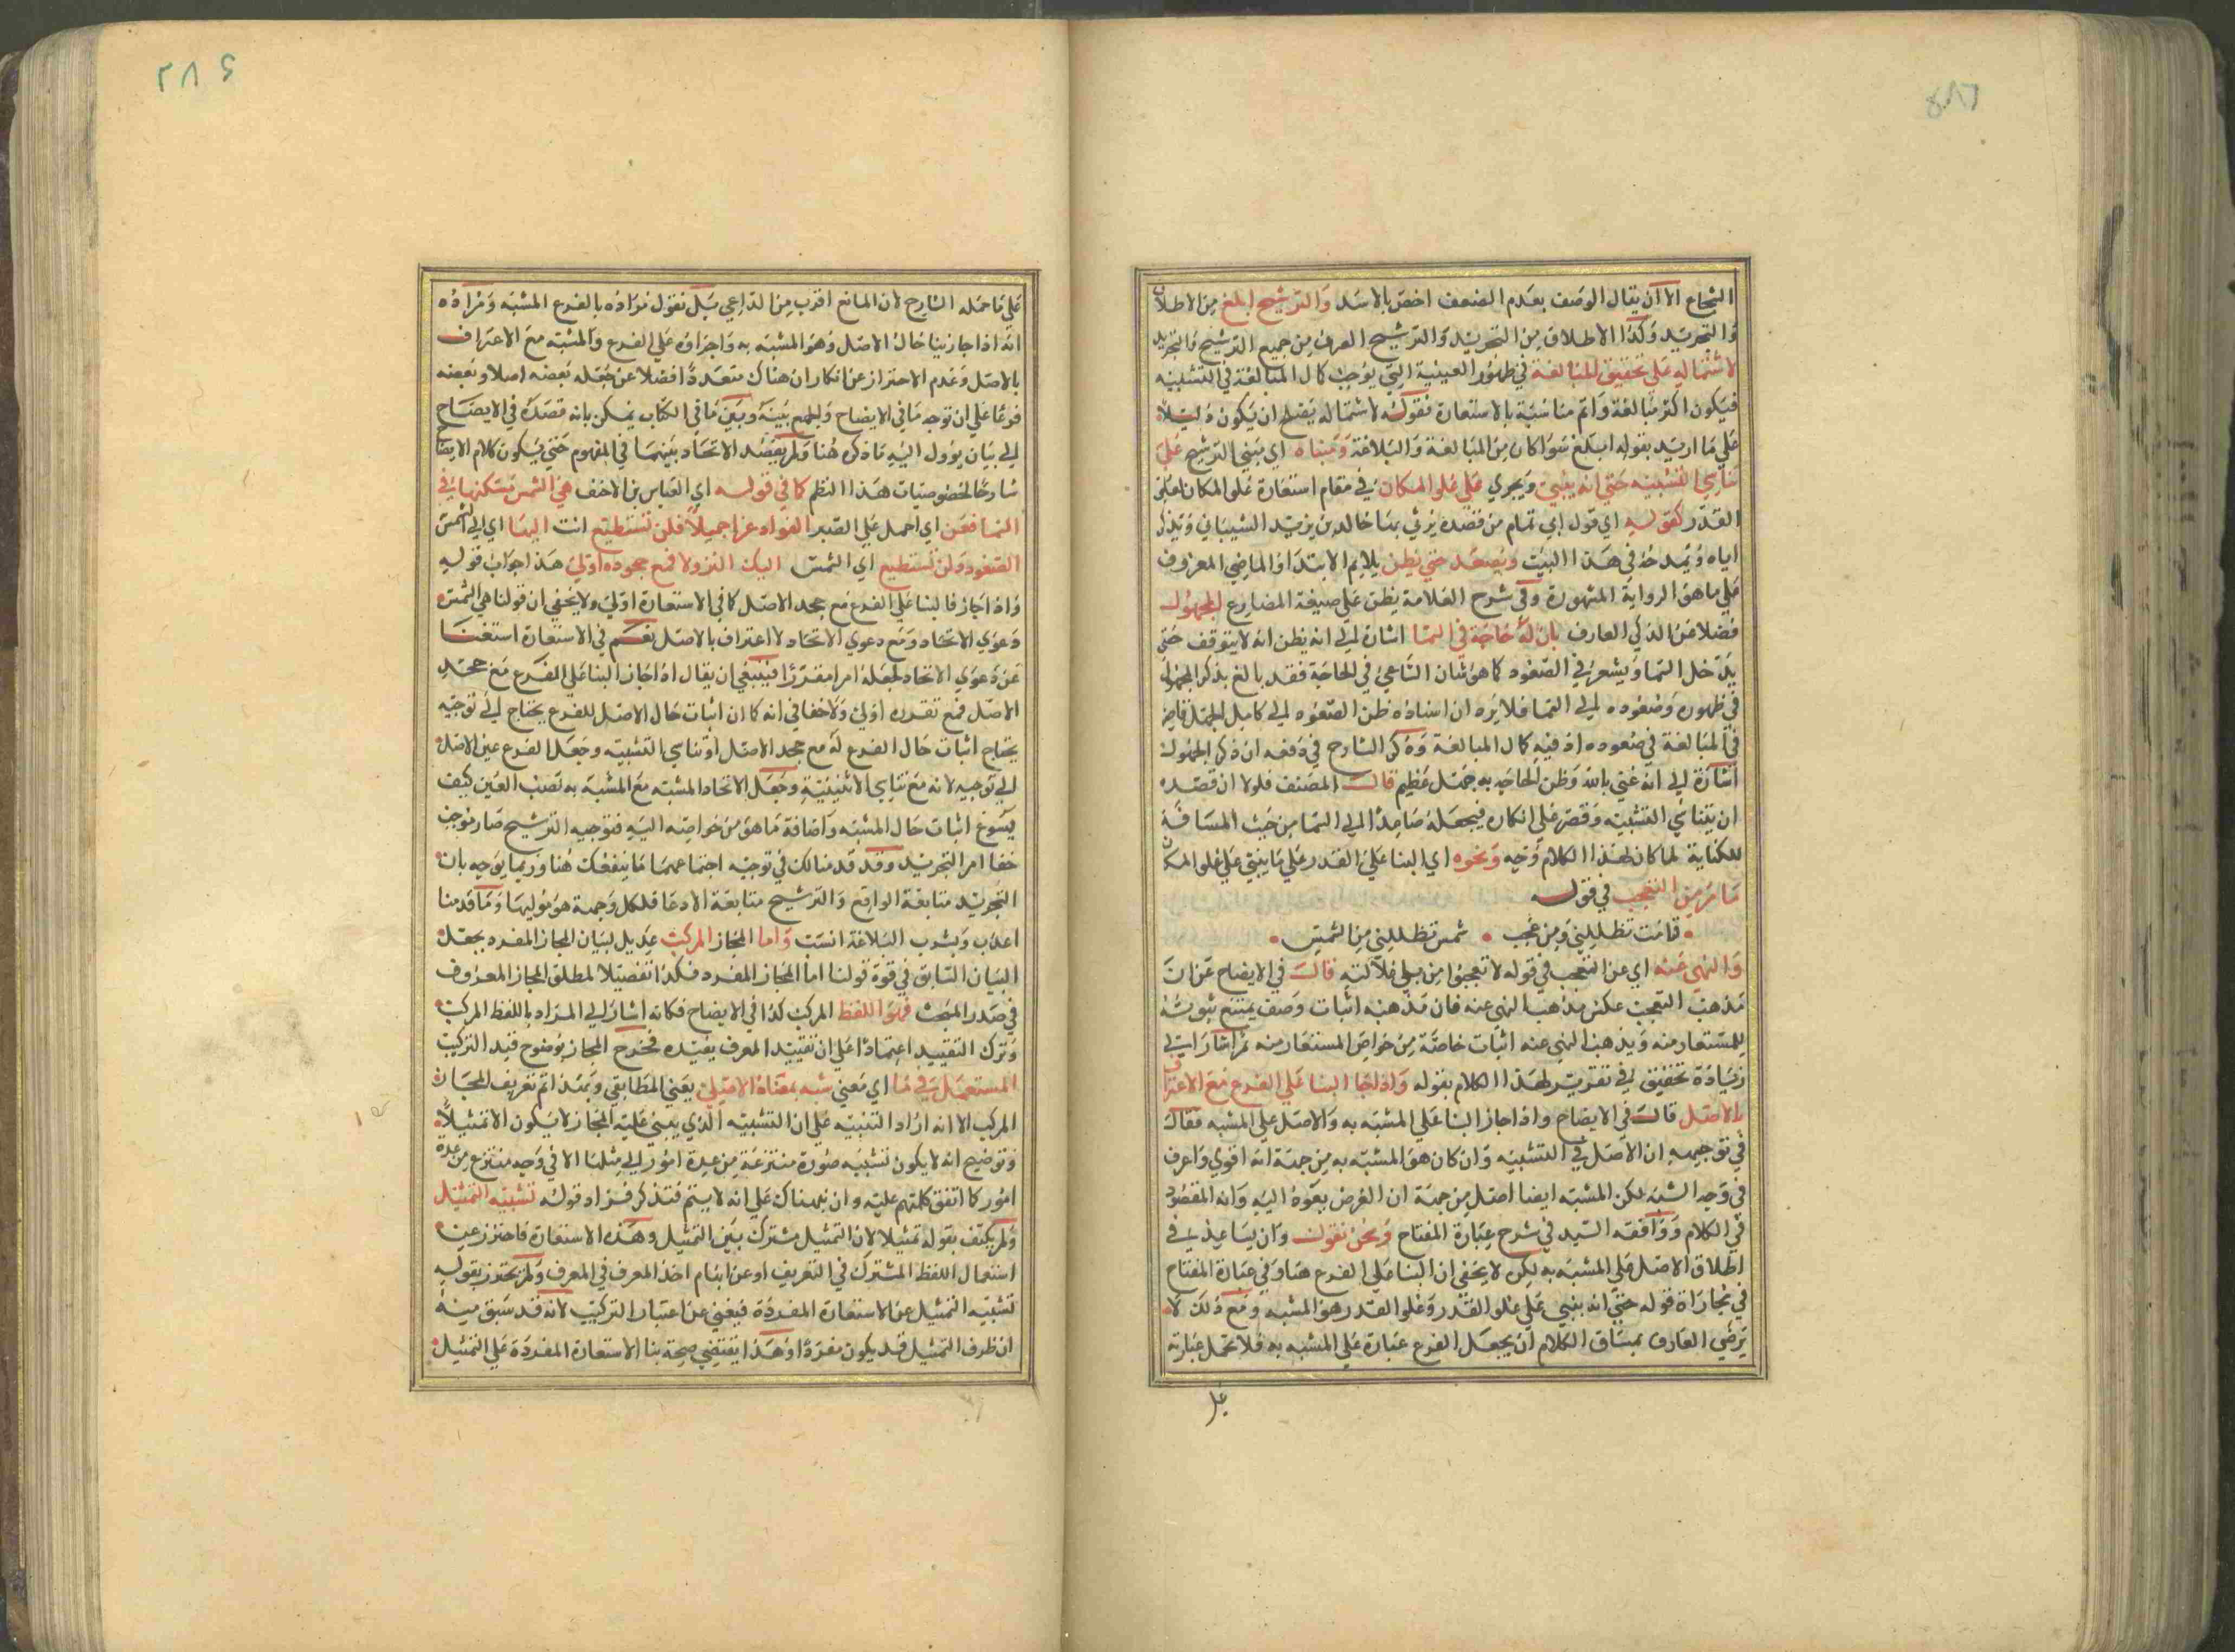 ٢٨٦
الشجاع الا ان يقال الوصف بعدم الضعف اخص بالاسد والترشيح ابلغ من الاطلاق
والتجريد وكذا الاطلاق من التجريد والترشيح الصرف من جميع الترشيح والتجريد
لاشتماله على تحقيق المبالغة في ظهور العينية التي يوجب كمال المبالغة في التشبيه
فيكون اكثر مبالغة واتم مناسبة بالاستعارة فقوله لاشتماله يصلح ان يكون دليلا
على ما اريد بقوله ابلغ سوا كان من المبالغة والبلاغة ومبناه اي مبنى الترشيح على
تناسي التشبيه حتى انه يبنى ويجري على علو المكان في مقام استعارة علو المكان لعلو
القدر كقوله اي قول ابي تمام من قصده يرثي بها خالد بن يزيد الشيباني ويذكر
اباه ويمدحه في هذا البيت ويصعد حتى يظن بلام الابتدا والماضي المعروف
على ما هو الرواية المشهورة وفي شرح العلامة يظن على صيغة المضارع الجهول
فضلا عن الذكي العارف بان له حاجة في السما اشارة الى انه يظن انه لا يتوقف حتى
يدخل السما ويشعر في الصعود كما هو شان الساعي في الحاجة فقد بالغ بذكر الجهول
في ظهوره وصعوده الى السما فلا يرد ان اسناده ظن الصعود الى كامل الجهل قاصر
في المبالغة في صعوده اذ فيه كمال المبالغة وذكر الشارح في دفعه ان ذكر الجهول
اشارة الى انه غني بالله وظن الحاجة به جهل عظيم قالت المصنف فلولا ان قصده
ان يتناسى التشبيه وقصر على انكاره فيجعله صاعدا الى السما من حيث المسافة
للكناية لما كان لهذا الكلام وجه ونحوه اي البنا على القدر على ما يبنى على علو المكان
ما مر من التعجب في قوله
قامت تظللني ومن عجب شمس تظللني من الشمس
والنهي عنه اي عن التعجب في قوله لا تعجبوا من بلى غلالته قال في الايضاح عن ان
مذهب التعجب عكس مذهب النهي عنه فان مذهبه اثبات وصف يمتنع ثبوته
للمستعار منه ومذهب النهي عنه اثبات خاصة من خواص المستعار منه ثم اشار الى
زيادة تحقيق في تقرير لهذا الكلام بقوله واذا جاز البنا على الفرع مع الاعتراف
بالاصل قال في الايضاح واذا جاز البنا على المشبه به والاصل على المشبه فقال
في توجيهه ان الاصل في التشبيه وان كان هو المشبه به من جهة انه اقوي واعرف
في وجه الشبه لكن المشبه ايضا اصل من جهة ان الغرض يعود اليه وانه المقصود
في الكلام ووافقه السيد في شرح عبارة المفتاح ونحن نقول وان يساعد في
اطلاق الاصل على المشبه به لكن لا يخفى ان البنا على الفرع هنا وفي عبارة المفتاح
في مجاراة قوله حتى انه يبنى على علو القدر وعلو القدر هو المشبه ومع ذلك لا
يرضي العارف بمساق الكلام ان يجعل الفرع عبارة على المشبه به فلا تحمل عبارته
على
٢٨٤
على ما حمله الشارح لان المانع اقرب من الداعي بل نقول مراده بالفرع المشبه ومراده
انه اذا جاز بنا حال الاصل وهو المشبه به واجراؤه على الفرع والمشبه مع الاعتراف
بالاصل وعدم الاحتراز عن انكار ان هناك متعددا فضلا عن جعله بعضه اصلا وبعضه
فرعا على ان توجه ما في الايضاح والجمع بينه وبين ما في الكتاب يمكن بانه قصده في الايضاح
الى بيان يؤول اليه ما ذكره هنا ولم يقصد الاتحاد بينهما في المفهوم حتى يكون كلام الايضاح
شارحا لخصوصيات هذا النظم كما في قوله اي العباس بن الاحنف هي الشمس مسكنها في
السما فعز اي احمل على الصبر الفواد عزا جميلا فلن تستطيع انت اليها اي الى الشمس
الصعود ولن تستطيع اي الشمس اليك النزولا فمع جحوده اولى هذا جواب قوله
واذا جاز فالبنا على الفرع مع جحد الاصل كما في الاستعارة اولى ولا يخفى ان قولنا هي الشمس
دعوي الاتحاد ومع دعوي الاتحاد لا اعتراف بالاصل نعم في الاستعارة استغنا
عن دعوي الاتحاد لجعله امرا مقررا فينبغي ان يقال اذا جاز البنا على الفرع مع جحد
الاصل فمع تقدره اولى ولا خفا في انه كما ان اثبات حال الاصل للفرع يحتاج الى توجيه
يحتاج اثبات حال الفرع له مع جحد الاصل او تناسي التشبيه وجعل الفرع عين الاصل
الى توجيه لانه مع تناسي الاثنينية وجعل الاتحاد المشبه مع المشبه به نصب العين كيف
يسوغ اثبات حال المشبه واضافة ما هو من خواصه اليه فتوجيه الترشيح صار موجب
خفا امر التجريد وقد قدمنا لك في توجيه اجتماعهما ما ينفعك هنا وربما يوجه بان
التجريد متابعة الواقع والترشيح متابعة الادعا فلكل وجهة هو موليها وما قدمنا
اعذب وبشرب البلاغة انسب واما المجاز المركب عديل لبيان المجاز المفرد بجعل
البيان السابق في قوة قولنا اما المجاز المفرد فكذا تفصيلا لمطلق المجاز المعروف
في صدر المبحث فهو اللفظ المركب كذا في الايضاح فكانه اشار الى المراد باللفظ المركب
وترك التقييد اعتمادا على ان تقييد المعرف يفيده فخرج المجاز بوضوح قيد التركيب
المستعمل في ما اي معنى شبه بمعناه الاصلي يعني المطابقي وبهذا تم تعريف المجاز
المركب الا انه اراد التنبيه على ان التشبيه الذي يبنى عليه المجاز لا يكون الا تمثيلا
وتوضيح انه لا يكون تشبيه صورة منتزعة من عدة امور الى مثلها الا في وجه منتزع من عدة
امور كما اتفق كلمتهم عليه وان نبهناك على انه لا يتم فتذكر فزاد قوله تشبيه التمثيل
ولم يكتف بقوله تمثيلا لان التمثيل مشترك بين التمثيل وهذه الاستعارة فاحترز عن
استعمال اللفظ المشترك في التعريف او عن ايهام اخذ المعرف في المعرف ولم يحترز بقوله
تشبيه التمثيل عن الاستعارة المفردة فيغني عن اعتبار التركيب لانه قد سبق منه
ان ظرف التمثيل قد يكون مفردا وهذا يقتضي صحة بنا الاستعارة المفردة على التمثيل